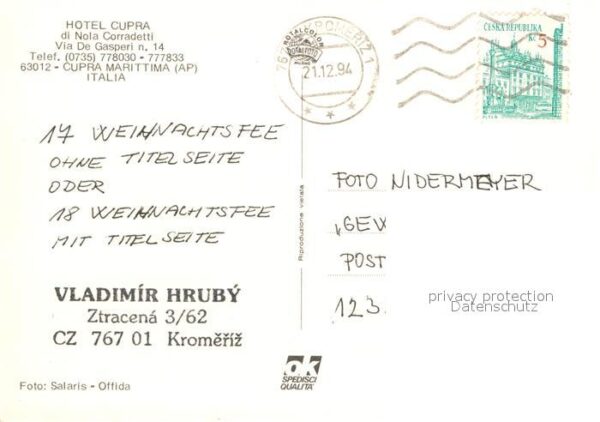 HOTEL CUPRA
di Nola Corradetti
Via De Gasperi n. 14
Telef. (0735) 778030 - 777833
63012 - CUPRA MARITTIMA (AP)
ITALIA
KROMĚŘÍŽ 1
ROTALCOLOR
21.12.94
ČESKÁ REPUBLIKA
Kč 5
PLZEŇ
17 WEIHNACHTSFEE
OHNE TITELSEITE
ODER
18 WEIHNACHTSFEE
MIT TITELSEITE
VLADIMÍR HRUBÝ
Ztracená 3/62
CZ 767 01 Kroměříž
Foto: Salaris - Offida
Riproduzione vietata
ok
SPEDISCI
QUALITA'
FOTO NIDERMEYER
"GEW
POST
123.
privacy protection
Datenschutz